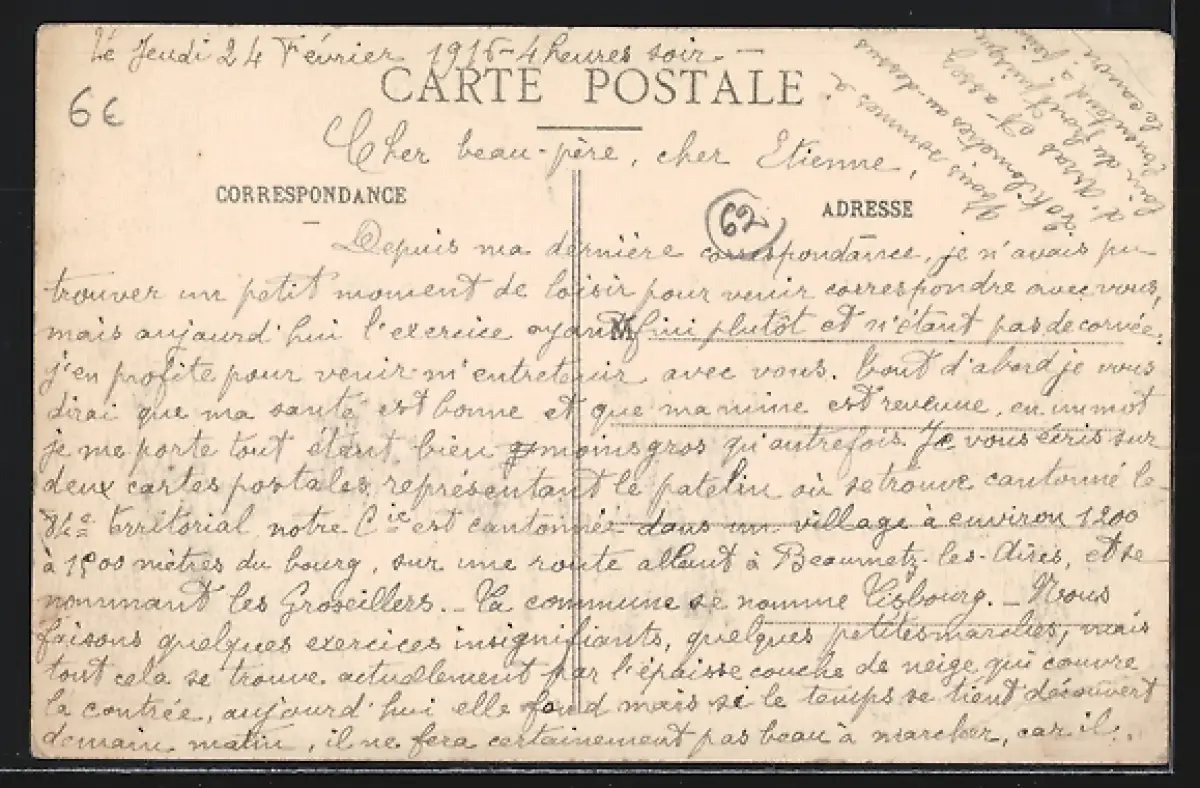 Le Jeudi 24 Février 1916 - 4 heures soir -
CARTE POSTALE
6€
Cher beau-père, cher Etienne,
CORRESPONDANCE
62
ADRESSE
Nous sommes à
kilomètres au-dessus
d'Arras et assez
loin du front puisque
le canon
Depuis ma dernière correspondance, je n'avais pu
trouver un petit moment de loisir pour venir correspondre avec vous,
mais aujourd'hui l'exercice ayant fini plutôt et n'étant pas de corvée.
M
j'en profite pour venir m'entretenir avec vous. Tout d'abord je vous
dirai que ma santé est bonne et que ma mine est revenue, en un mot
je me porte tout étant bien moins gros qu'autrefois. Je vous écris sur
deux cartes postales, représentant le patelin où se trouve cantonné le
territorial notre Cie est cantonnée dans un village à environ 1200
à 1500 mètres du bourg, sur une route allant à Beaumetz-les-Aires, et se
nommant les Groseillers. - La commune se nomme Lisbourg. - Nous
faisons quelques exercices insignifiants, quelques petites marches, mais
tout cela se trouve actuellement par l'épaisse couche de neige qui couvre
la contrée, aujourd'hui elle fond mais si le temps se tient découvert
demain matin, il ne fera certainement pas beau à marcher, car il.